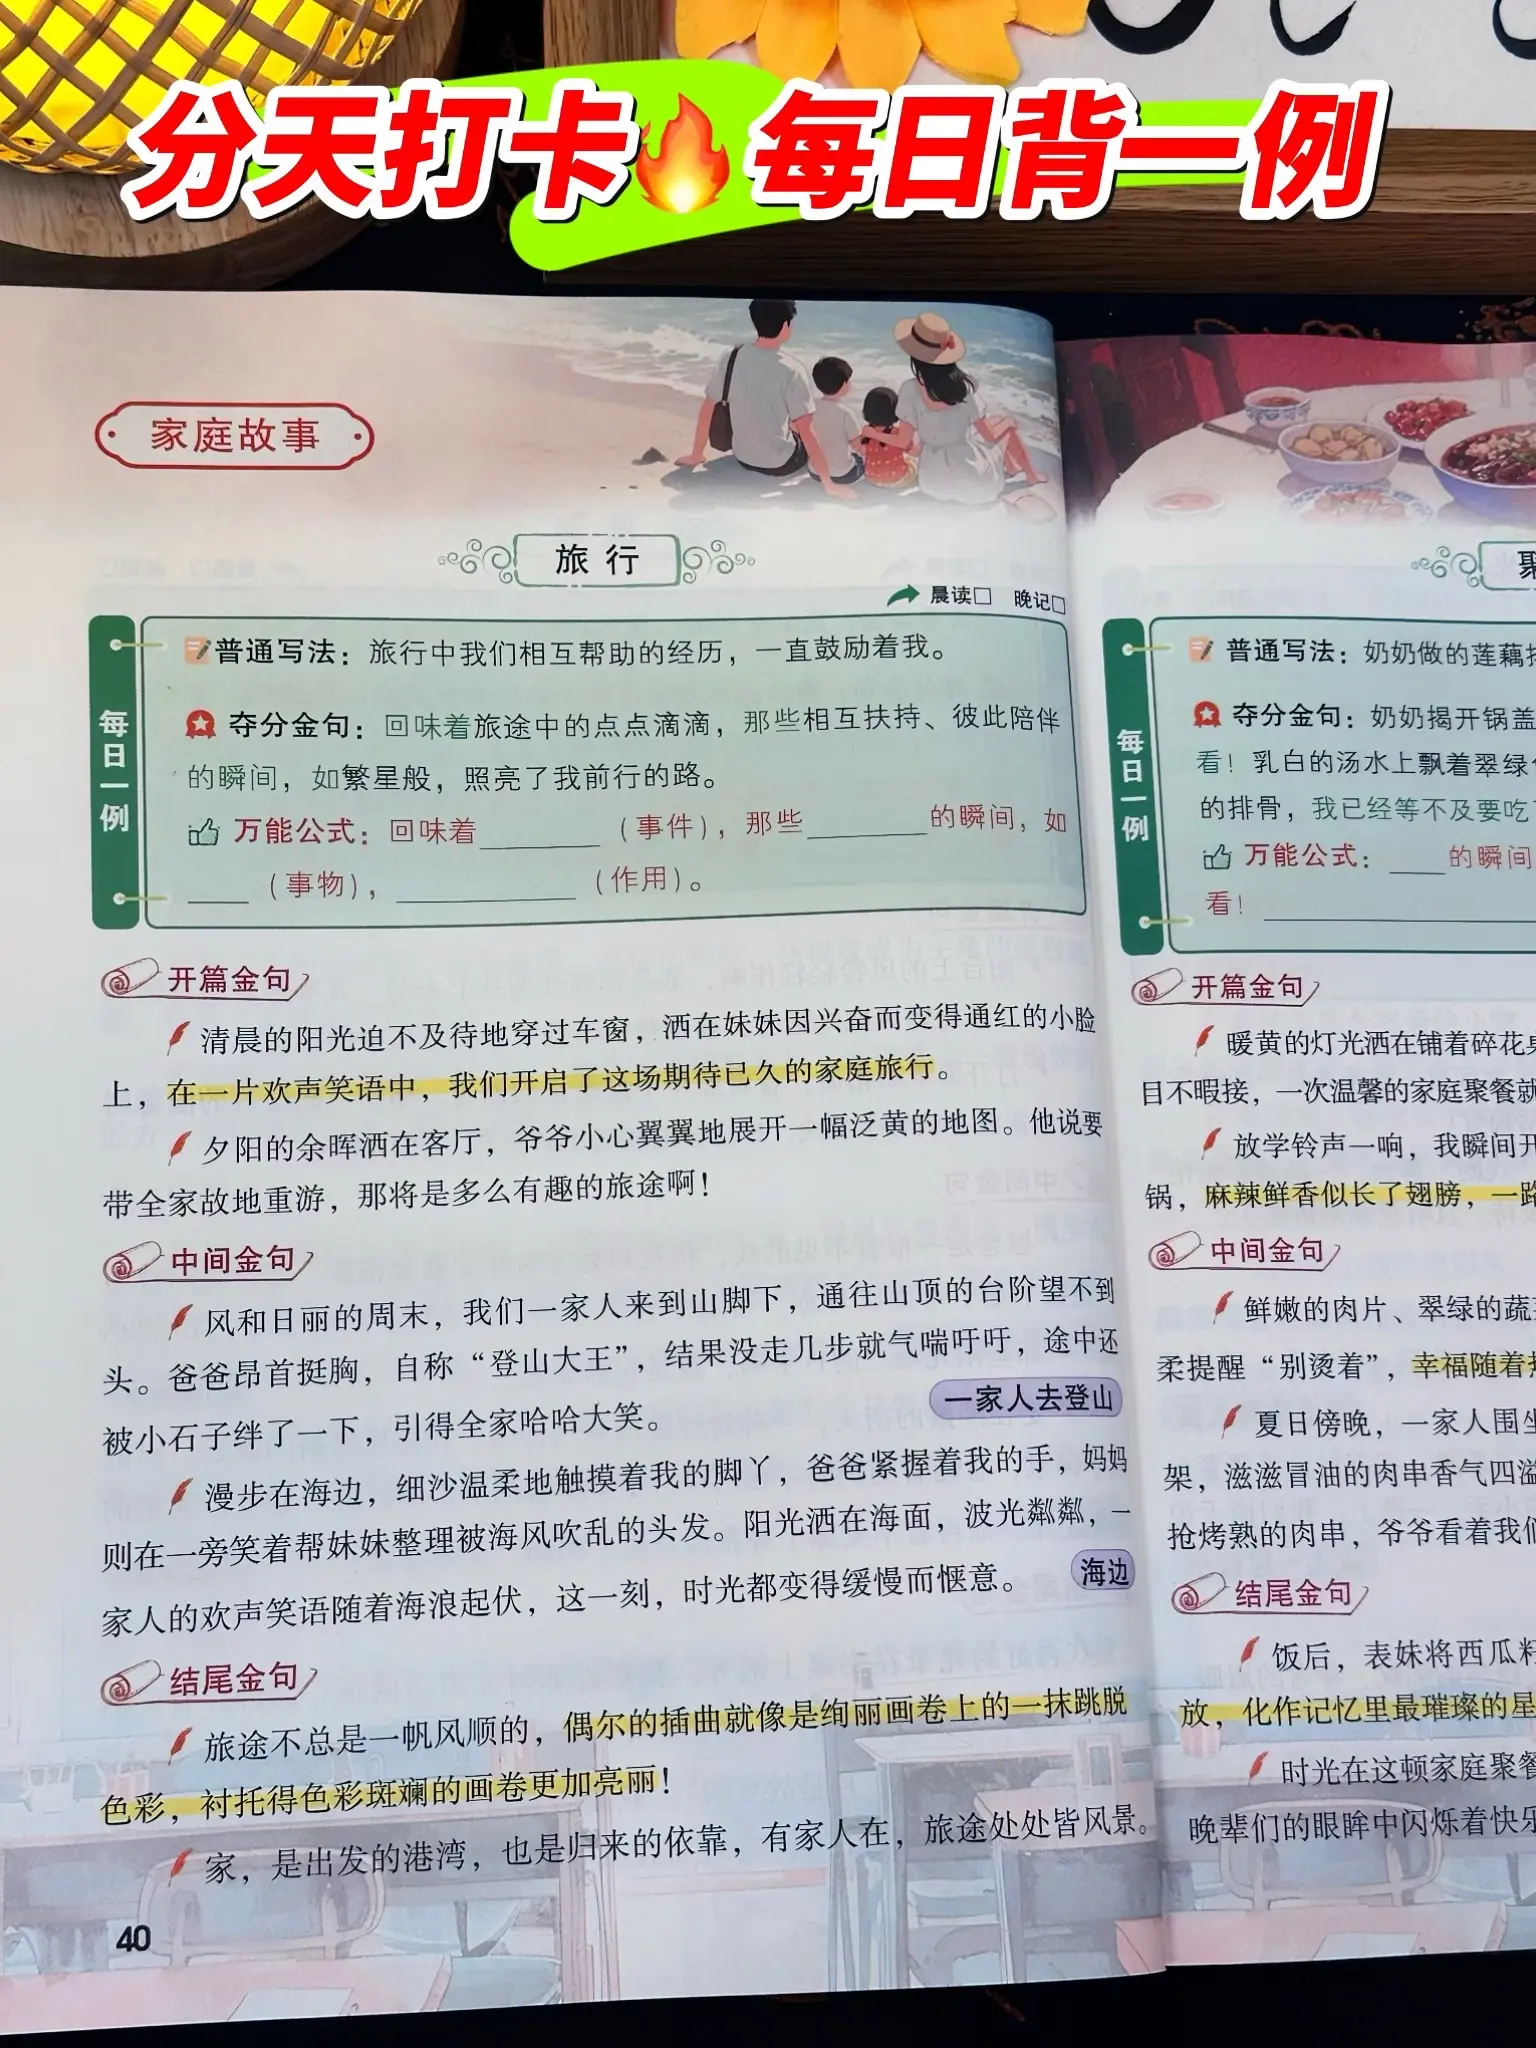 分天打卡🔥每日背一例
家庭故事
旅行
晨读□ 晚记□
每日一例
普通写法：旅行中我们相互帮助的经历，一直鼓励着我。
夺分金句：回味着旅途中的点点滴滴，那些相互扶持、彼此陪伴
的瞬间，如繁星般，照亮了我前行的路。
万能公式：回味着________（事件），那些________的瞬间，如
____（事物），____________（作用）。
开篇金句
清晨的阳光迫不及待地穿过车窗，洒在妹妹因兴奋而变得通红的小脸
上，在一片欢声笑语中，我们开启了这场期待已久的家庭旅行。
夕阳的余晖洒在客厅，爷爷小心翼翼地展开一幅泛黄的地图。他说要
带全家故地重游，那将是多么有趣的旅途啊！
中间金句
风和日丽的周末，我们一家人来到山脚下，通往山顶的台阶望不到
头。爸爸昂首挺胸，自称“登山大王”，结果没走几步就气喘吁吁，途中还
被小石子绊了一下，引得全家哈哈大笑。
一家人去登山
漫步在海边，细沙温柔地触摸着我的脚丫，爸爸紧握着我的手，妈妈
则在一旁笑着帮妹妹整理被海风吹乱的头发。阳光洒在海面，波光粼粼，一
家人的欢声笑语随着海浪起伏，这一刻，时光都变得缓慢而惬意。
海边
结尾金句
旅途不总是一帆风顺的，偶尔的插曲就像是绚丽画卷上的一抹跳脱
色彩，衬托得色彩斑斓的画卷更加亮丽！
家，是出发的港湾，也是归来的依靠，有家人在，旅途处处皆风景。
40
每日一例
普通写法：奶奶做的莲藕
夺分金句：奶奶揭开锅盖
看！乳白的汤水上飘着翠绿
的排骨，我已经等不及要吃
万能公式：____的瞬间
看！
开篇金句
暖黄的灯光洒在铺着碎花
目不暇接，一次温馨的家庭聚餐就
放学铃声一响，我瞬间开
锅，麻辣鲜香似长了翅膀，一路
中间金句
鲜嫩的肉片、翠绿的蔬
柔提醒“别烫着”，幸福随着
夏日傍晚，一家人围坐
架，滋滋冒油的肉串香气四溢
抢烤熟的肉串，爷爷看着我们
结尾金句
饭后，表妹将西瓜籽
放，化作记忆里最璀璨的星
时光在这顿家庭聚餐
晚辈们的眼眸中闪烁着快乐